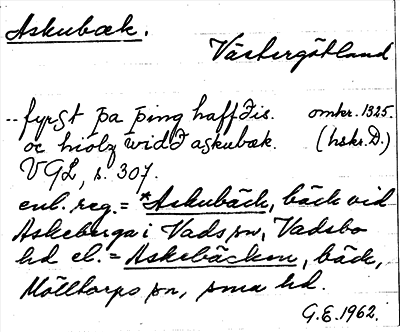 Askubæk.
Västergötland
-- fyrst þa þing haff ðis. omkr. 1325.
oc hiolz widð askubæk. (hskr. D.)
VGL, s. 307.
enl. reg. = *Askubäck, bäck vid
Askeberga i Vads sn, Vadsbo
hd el. = Askebäcken, bäck,
Mölltorps sn, sma hd.
G.E. 1962.